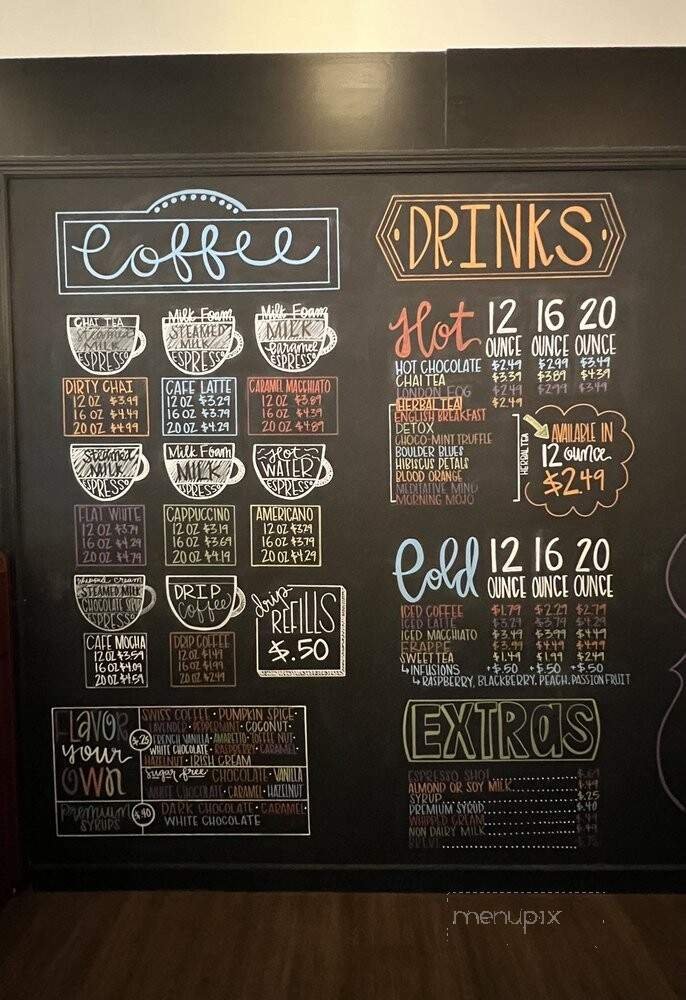 Coffee
CHAI TEA
ESPRESSO
DIRTY CHAI
12 OZ $3.99
16 OZ $4.49
20 OZ $4.99
Milk Foam
STEAMED
MILK
ESPRESSO
CAFE LATTE
12 OZ $3.29
16 OZ $3.79
20 OZ $4.29
Milk Foam
MILK
Caramel
ESPRESSO
CARAMEL MACCHIATO
12 OZ $3.89
16 OZ $4.39
20 OZ $4.89
Steamed
MILK
ESPRESSO
FLAT WHITE
12 OZ $3.79
16 OZ $4.29
20 OZ $4.79
Milk Foam
MILK
ESPRESSO
CAPPUCCINO
12 OZ $3.19
16 OZ $3.69
20 OZ $4.19
Hot
WATER
ESPRESSO
AMERICANO
12 OZ $3.29
16 OZ $3.79
20 OZ $4.29
whipped cream
STEAMED MILK
CHOCOLATE SYRUP
ESPRESSO
CAFE MOCHA
12 OZ $3.59
16 OZ $4.09
20 OZ $4.59
DRIP
Coffee
DRIP COFFEE
12 OZ $1.49
16 OZ $1.99
20 OZ $2.49
drip
REFILLS
$.50
FLAVOR
your
OWN
$.25
SWISS COFFEE • PUMPKIN SPICE •
LAVENDER • PEPPERMINT • COCONUT •
FRENCH VANILLA • AMARETTO • TOFFEE NUT •
WHITE CHOCOLATE • RASPBERRY • CARAMEL •
HAZELNUT • IRISH CREAM
Sugar free CHOCOLATE • VANILLA
WHITE CHOCOLATE • CARAMEL • HAZELNUT
PREMIUM
SYRUPS
$.40
DARK CHOCOLATE • CARAMEL •
WHITE CHOCOLATE
DRINKS
Hot 12 16 20
OUNCE OUNCE OUNCE
HOT CHOCOLATE $2.49 $2.99 $3.49
CHAI TEA $3.39 $3.89 $4.39
LONDON FOG $2.49 $2.99 $3.49
HERBAL TEA $2.49
ENGLISH BREAKFAST
DETOX
CHOCO-MINT TRUFFLE
BOULDER BLUES
HIBISCUS PETALS
BLOOD ORANGE
MEDITATIVE MIND
MORNING MOJO
HERBAL TEA
AVAILABLE IN
12 ounce
$2.49
Cold 12 16 20
OUNCE OUNCE OUNCE
ICED COFFEE $1.79 $2.29 $2.79
ICED LATTE $3.29 $3.79 $4.29
ICED MACCHIATO $3.49 $3.99 $4.49
FRAPPE $3.99 $4.49 $4.99
SWEET TEA $1.49 $1.99 $2.49
INFUSIONS +$.50 +$.50 +$.50
RASPBERRY, BLACKBERRY, PEACH, PASSION FRUIT
EXTRAS
ESPRESSO SHOT
ALMOND OR SOY MILK
SYRUP $.25
PREMIUM SYRUP $.40
WHIPPED CREAM
NON DAIRY MILK
menupix